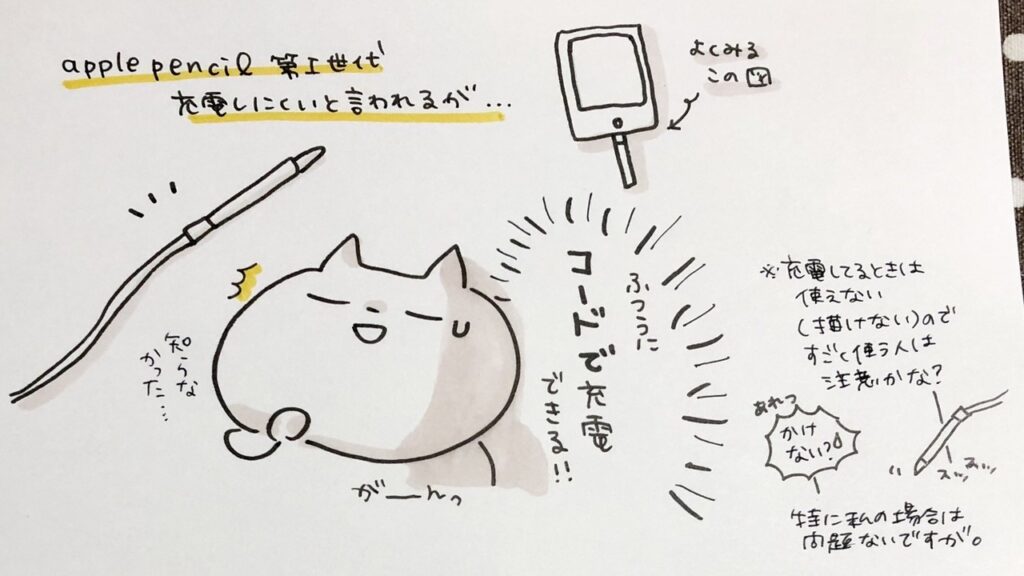 apple pencil 第I世代
充電しにくいと言われるが…
よくみる
この図
ふつうに
コードで充電
できる!!
知らな
かった…
がーんっ
※充電してるときは
使えない
(描けない)ので
すごく使う人は
注意かな?
あれっ
かけ
ない?
スッスッ
特に私の場合は
問題ないですが。